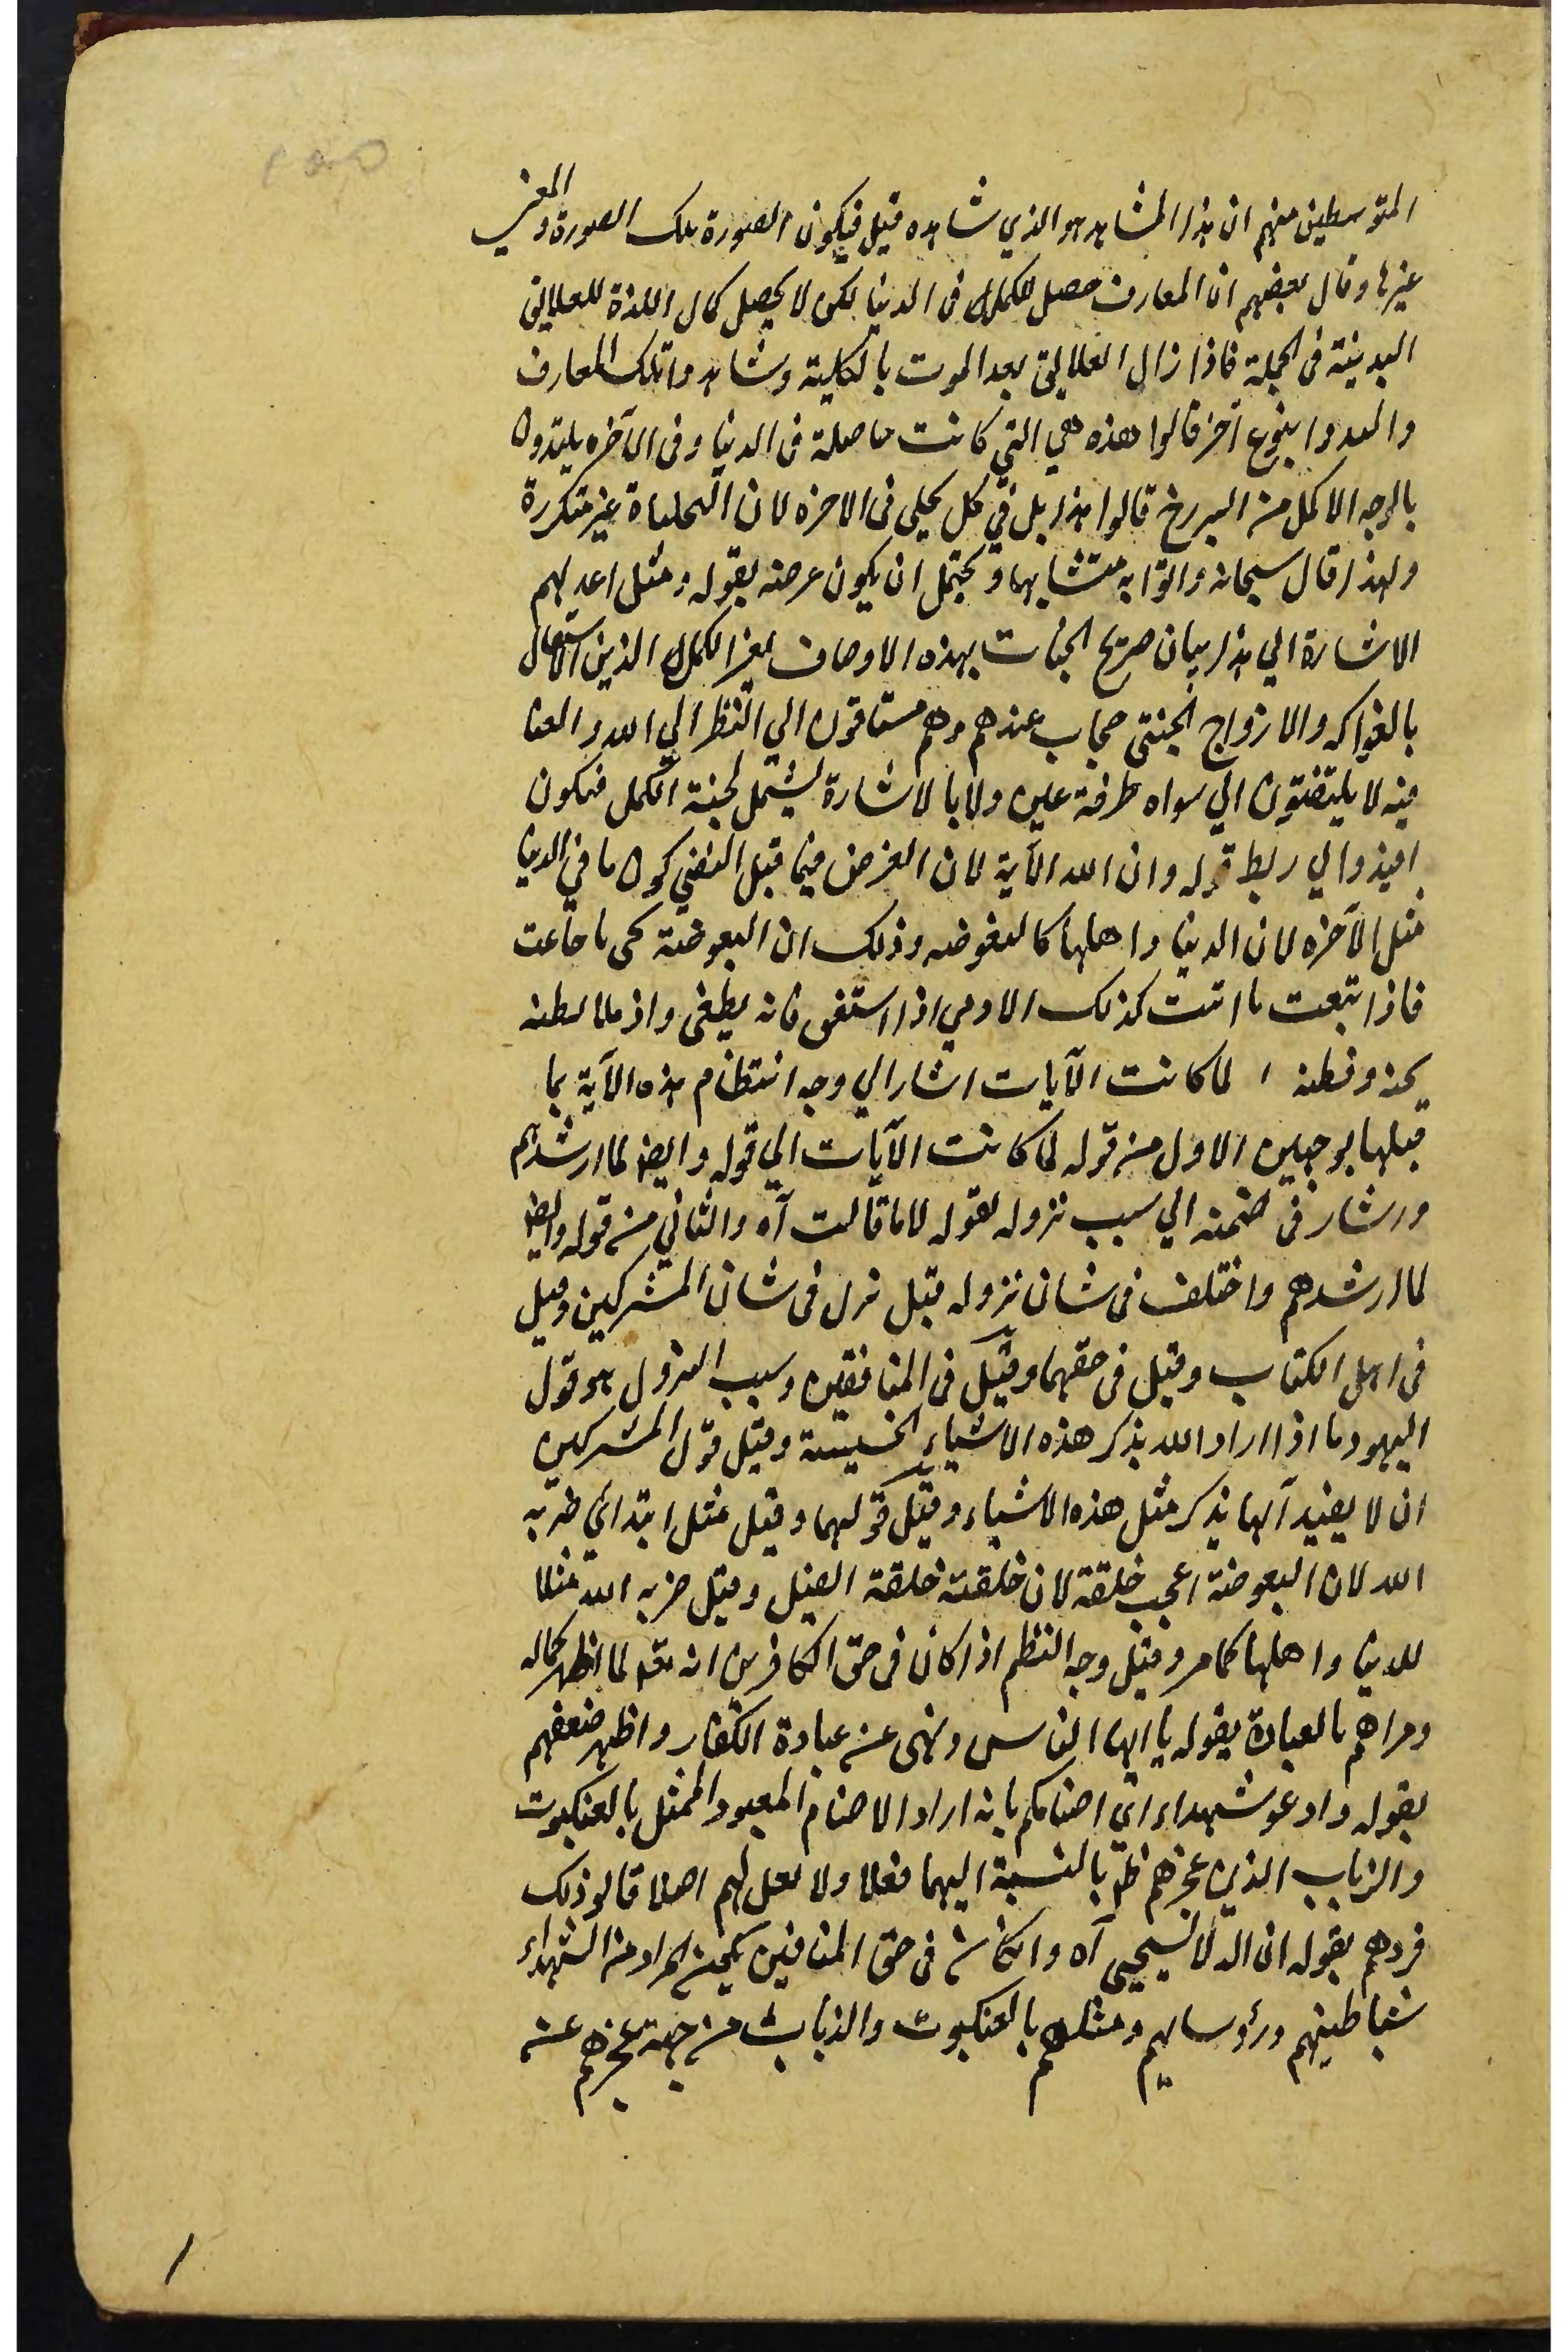 المتوسطين منهم ان هذا المشاهد هو الذي شاهده قبل فيكون الصورة تلك الصورة والمعنى
غيرها وقال بعضهم ان المعارف حصل للكمل في الدنيا لكن لا يحصل كمال اللذة للعلايق
البدنية في الجملة فاذا زال العلايق بعد الموت بالكلية وشاهدوا تلك المعارف
بنوع آخر قالوا هذه هي التي كانت حاصلة في الدنيا وفي الآخرة يلتذون
بالوجه الاكمل من قالوا هذا بل في كل تجلى في الاخره لان غير متكررة
ولهذا قال سبحانه واتوا به متشابها ويحتمل ان يكون غرضه بقوله ومثل اعد لهم
الاشارة الي هذا بيان صريح الجنات بهذه الاوصاف لغير الكمل الذين
بالفواكه والازواج الجنتي حجاب عندهم وهم مشتاقون الي النظر الي الله
فيه لا يلتفتون الي سواه طرفة عين ولا بالاشارة ليشمل لجنة الكمل فيكون
افيد والي ربط قوله وان الله الآية لان الغرض فيما قبل ما في الدنيا
مثل الآخره لان الدنيا واهلها كالبعوضه وذلك ان البعوضة تحى ما جاعت
فاذا شبعت ماتت كذلك الادمي اذا استغنى فانه يطغى واذ
لما كانت الآيات اشار الي وجه انتظام هذه الآية بما
قبلها بوجهين الاول من قوله لما كانت الآيات الي قوله وايضا لما ارشدهم
ورشار في ضمنه الي سبب نزوله بقوله لاما قالت آه والثاني من قوله وايضا
لما ارشدهم واختلف في شان نزوله قيل نزل في شان المشركين وقيل
في اهل الكتاب وقيل في حقهما وقيل في المنافقين وسبب النزول هو قول
اليهود ما اذا اراد الله بذكر هذه الاشياء الخسيسة وقيل قول المشركين
ان لا يعبد آلها يذكر مثل هذه الاشياء وقيل قولهما وقيل مثل ابتدائي ضربه
الله لان البعوضة اعجب خلقة لان خلقته خلقة الفيل وقيل ضربه الله مثلا
للدنيا واهلها كما مر وقيل وجه النظم اذا كان في حق الكافرين انه تعا لما اظهر كماله
بالعبادة بقوله يا ايها الناس ونهى عن عبادة الكفار واظهر ضعفهم
بقوله وادعوا شهداء اي اصنامكم بانه اراد الاصنام المعبود الممثل بالعنكبوت
والذباب الذين عجزهم ظهر بالنسبة اليهما فعلا ولا لهم اصلا قالو ذلك
فردهم بقوله ان الله لا يستحيي آه وان كان في حق المنافقين يكون المراد من الشهداء
شياطينهم ورؤسائهم ومثلهم بالعنكبوت والذباب من جهة عجزهم عن